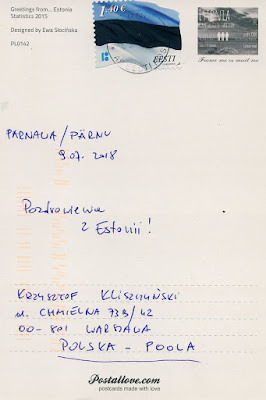 Greetings from... Estonia
Statistics 2013
Designed by Ewa Słocińska
PL0142
1.40 €
EESTI
PARNAWA/PÄRNU
9.07.2018
Pozdrowienia
z Estonii!
KRZYSZTOF KLISZCZYŃSKI
ul. CHMIELNA 73B/42
00-801 WARSZAWA
POLSKA - POOLA
Postallove.com
postcards made with love